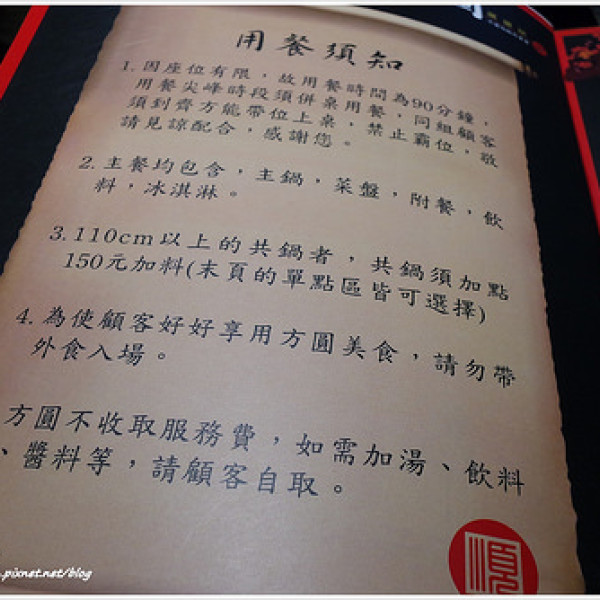 用餐須知
1. 因座位有限，故用餐時間為90分鐘，
用餐尖峰時段須併桌用餐，同組顧客
須到齊方能帶位上桌，禁止霸位，敬
請見諒配合，感謝您。
2. 主餐均包含，主鍋，菜盤，附餐，飲
料，冰淇淋。
3. 110cm以上的共鍋者，共鍋須加點
150元加料(末頁的單點區皆可選擇)
4. 為使顧客好好享用方圓美食，請勿帶
外食入場。
方圓不收取服務費，如需加湯、飲料
、醬料等，請顧客自取。
.pixnet.net/blog